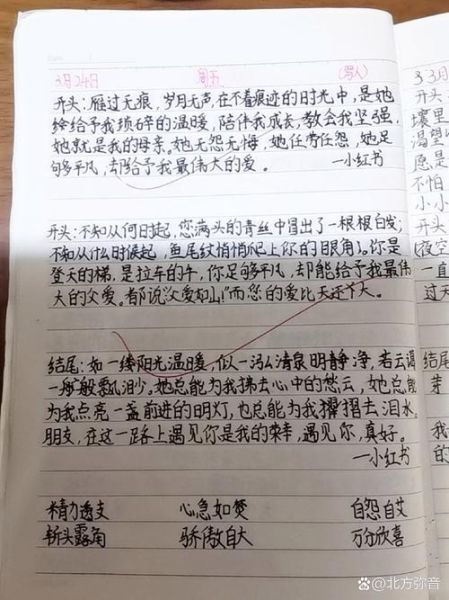 3月24日 周五 (写人)
开头:雁过无痕,岁月无声,在不着痕迹的时光中,是她
给给予我琐碎的温暖,陪伴我成长,教会我坚强。
她就是我的母亲,她无怨无悔,她任劳任怨,她足
够多平凡,却给予我最伟大的爱。 —小红书
开头:不知从何日起,您满头的青丝中冒出了一根根白发;
不知从什么时候起,鱼尾纹悄悄爬上你的眼角。你是
登天的梯,是拉车的牛,你足够平凡,却能给予我最伟
大的父爱。都说“父爱如山”而您的爱比天还大。
结尾:如一缕阳光温暖,似一汪清泉明静净,若云
一般飘渺。她总能为我拂去心中的愁云,她总能
为我点亮一盏前进的明灯,也总能为我擢摺去泪水。
朋友,在这一路上遇见你是我的荣幸,遇见你,真好。
—小红书
精力透支 心急如焚 自怨自艾
崭头露角 骄傲自大 万分欣喜
3 3月
开头
壤里
渴望
愿是
不怕
小
开头
(夜空
一直
过天
结尾
芽
我
的
@北方弥音